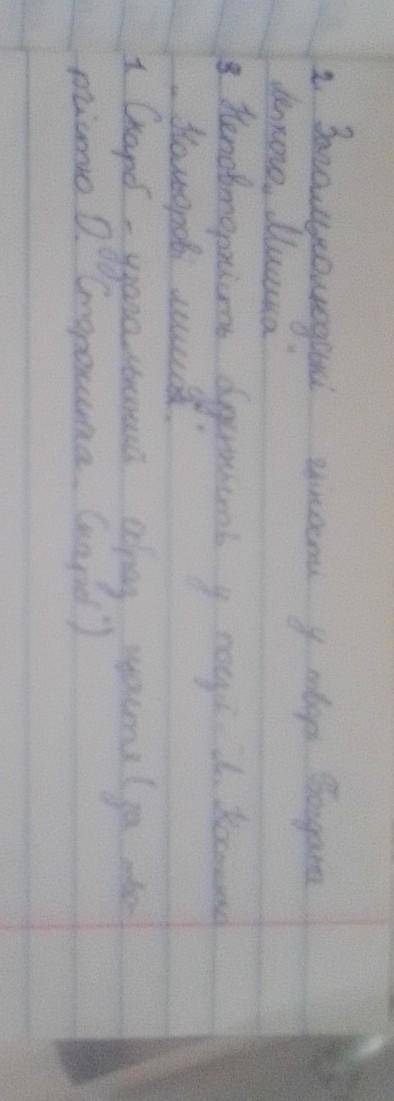 2. Загальнолюдські цінності у творі Богдана
Лепкого „Мишка"
3. Неповторність буття у поезії Л. Костенко
„Кольорові миші".
1. Скарб - узагальнений образ щастя (за
О. Стороженка „Скарб")